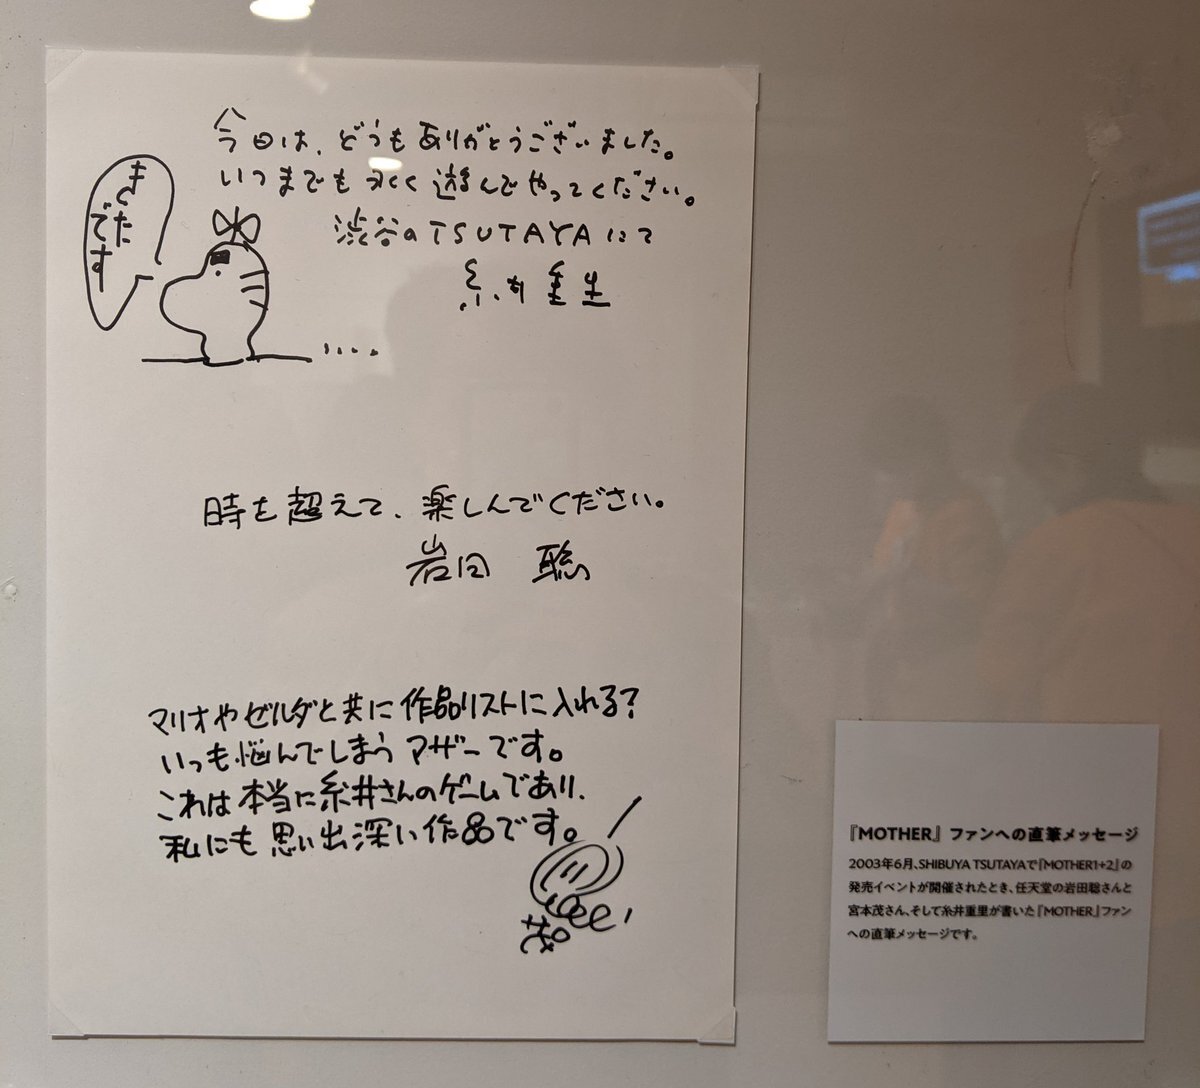 今日は、どうもありがとうございました。
いつまでも永く遊んでやってください。
渋谷のTSUTAYAにて
糸井重里
きてた
です
....
時を超えて、楽しんでください。
岩田 聡
マリオやゼルダと共に作品リストに入れる?
いつも悩んでしまうマザーです。
これは本当に糸井さんのゲームであり、
私にも思い出深い作品です。
茂
『MOTHER』ファンへの直筆メッセージ
2003年6月、SHIBUYA TSUTAYAで『MOTHER1+2』の
発売イベントが開催されたとき、任天堂の岩田聡さんと
宮本茂さん、そして糸井重里が書いた『MOTHER』ファン
への直筆メッセージです。